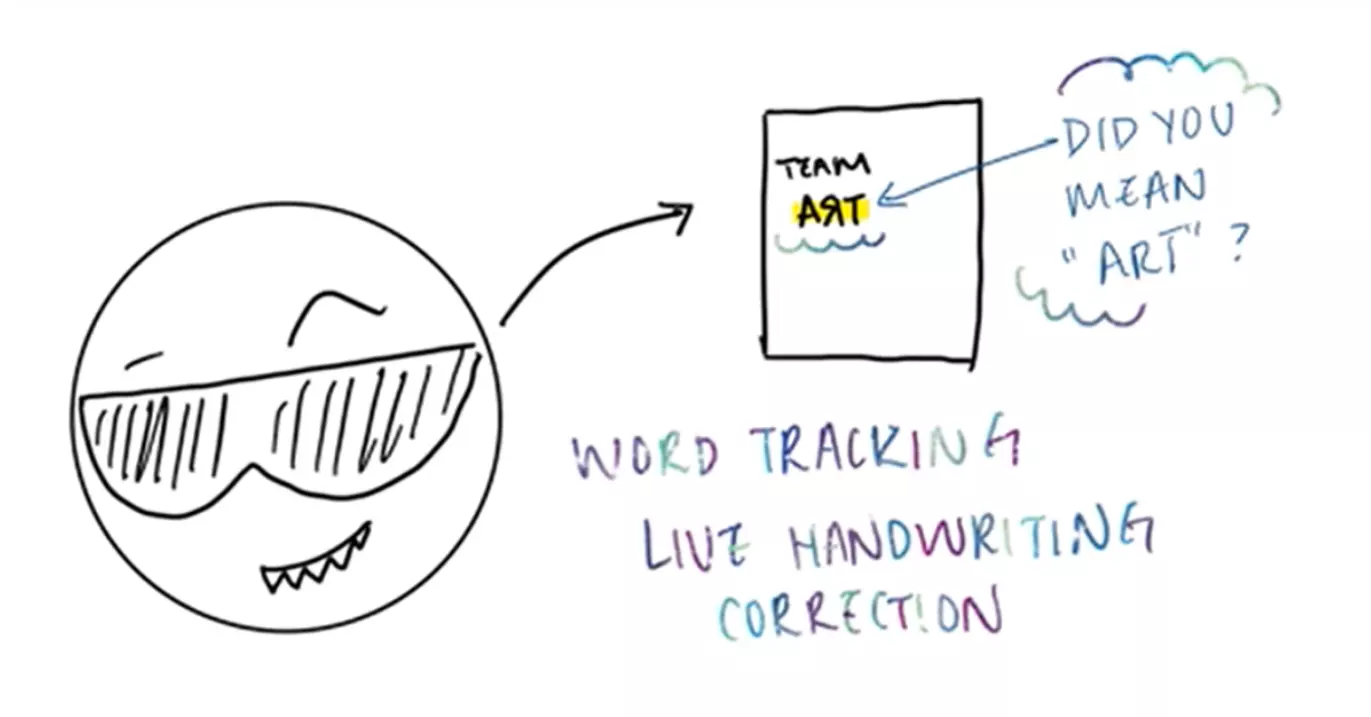 TEAM
AЯT
DID YOU
MEAN
"ART"?
WORD TRACKING
LIVE HANDWRITING
CORRECTION